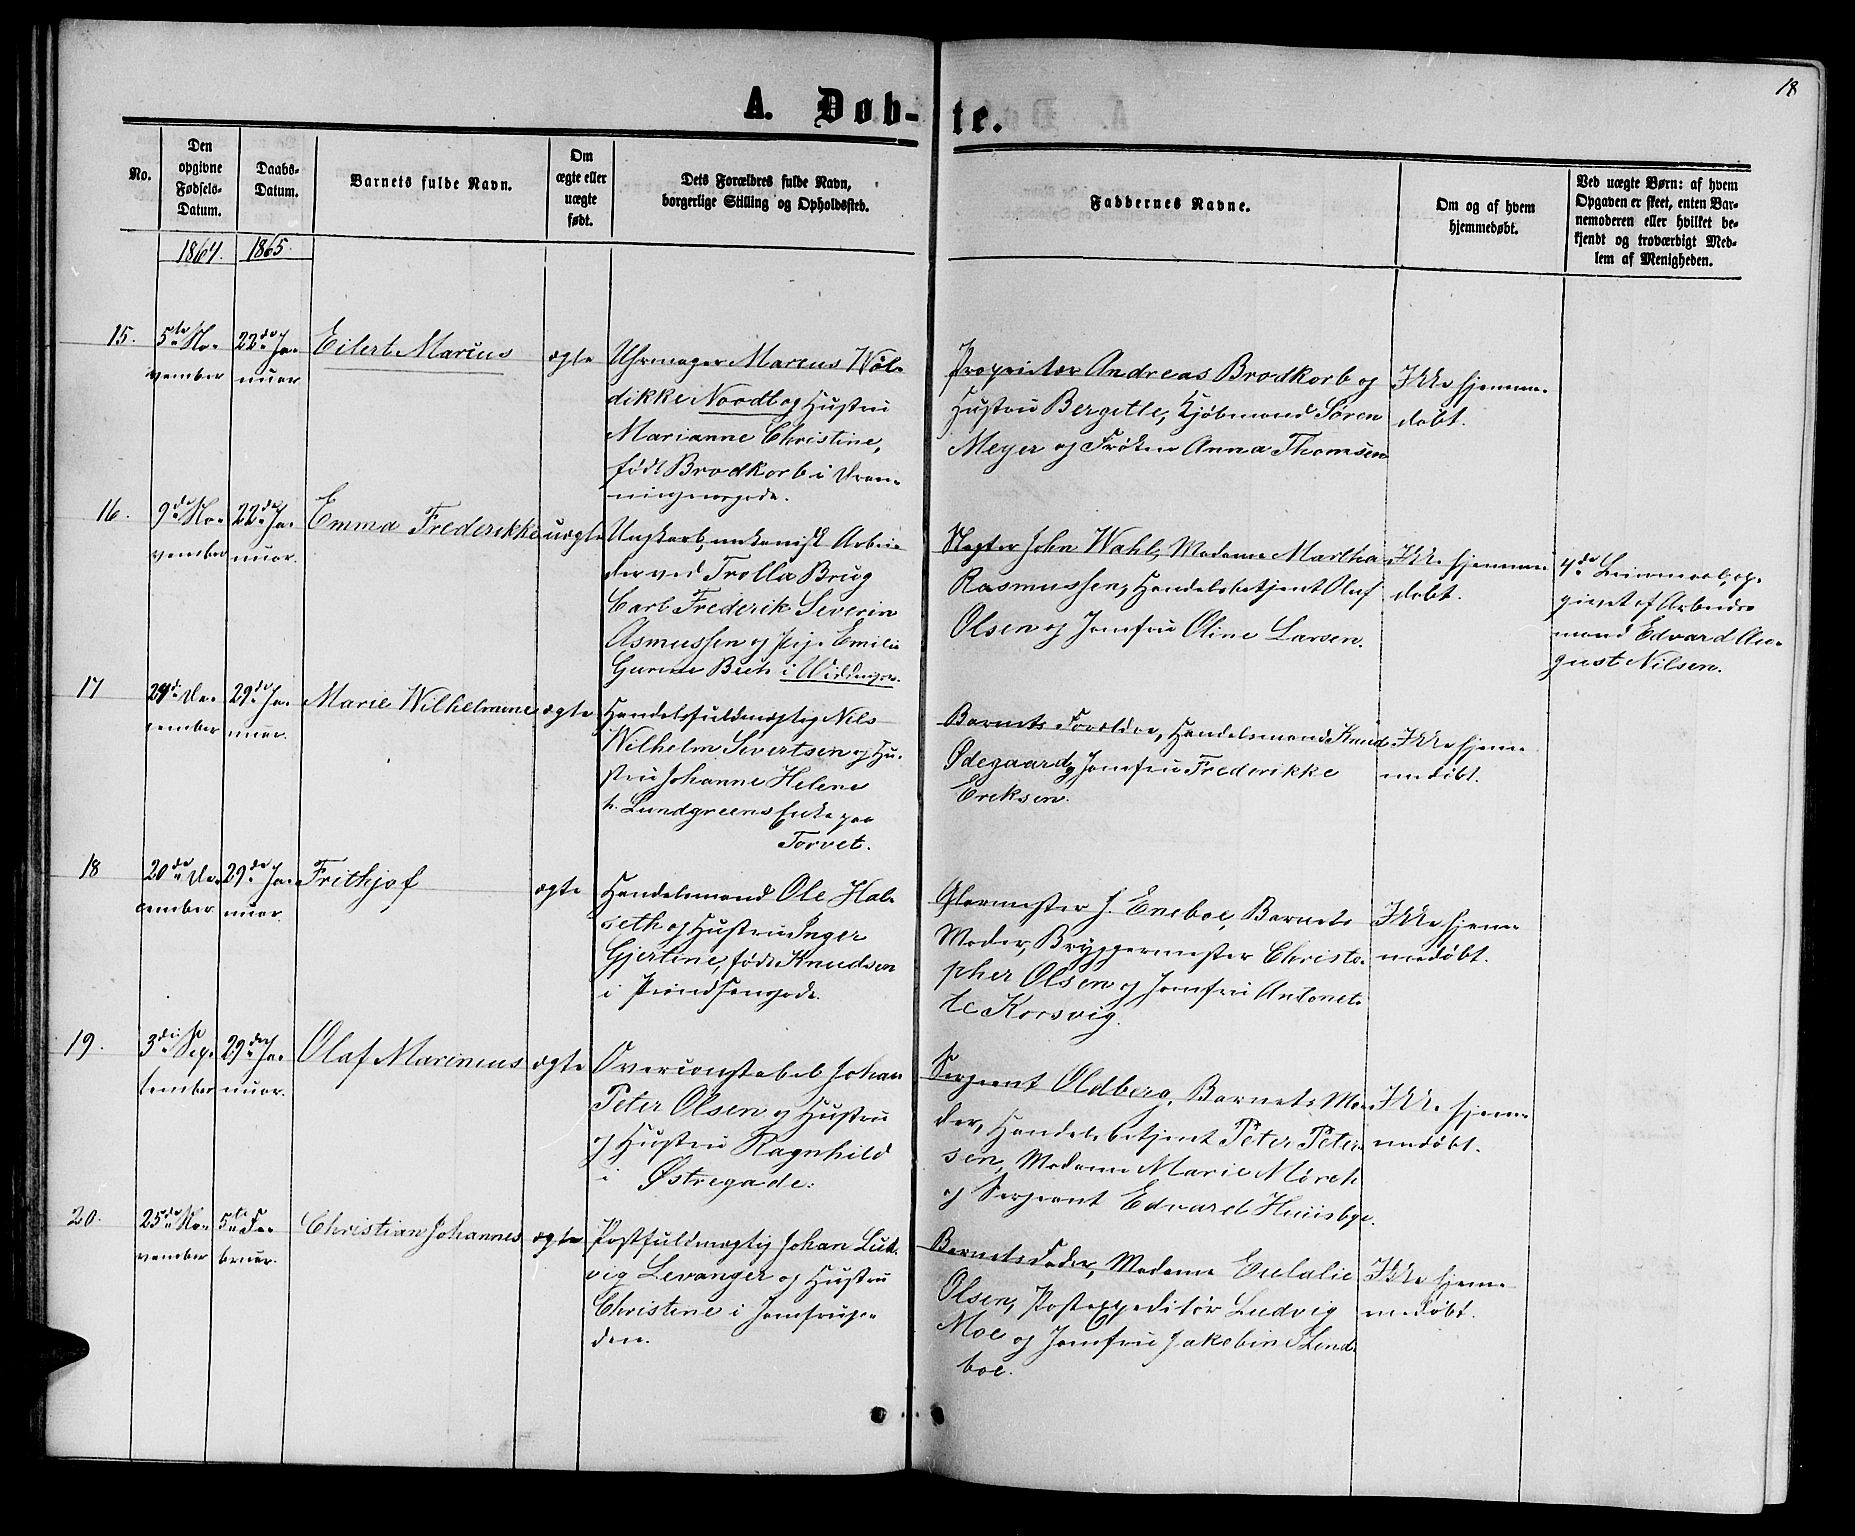 18
A. Døb- te.
No.
Den opgivne Fødsels-Datum.
Daabs-Datum.
Barnets fulde Navn.
Om ægte eller uægte født.
Dets Forældres fulde Navn, borgerlige Stilling og Opholdssted.
Faddernes Navne.
Om og af hvem hjemmedøbt.
Ved uægte Børn: af hvem Opgaven er skeet, enten Barnemoderen eller hvilket bekjendt og troværdigt Medlem af Menigheden.
1864. 1865.
15.
5te No-
vember
22de Ja-
nuar
Eilert Marius
ægte
Uhrmager Marcus Wøl-
dikke Noodt og Hustru
Marianne Christine,
født Brodkorb i Dron-
ningensgade.
Proprietær Andreas Brodkorb og
Hustru Bergitte, Kjøbmand Søren
Meyer og Frøken Anna Thomsen
Ikke hjemme-
døbt.
16.
9de No-
vember
22de Ja-
nuar.
Emma Frederikke
uægte
Ungkarl, mekanisk Arbei-
der ved Trolla Brug
Carl Frederik Severin
Asmussen og Pige Emilie
Gurine Bech i
Slagter John Wahl, Madame Martha
Rasmussen, Handelsbetjent Oluf
Olsen og Jomfru Oline Larsen.
Ikke hjemme-
døbt.
4de Leiermaal, op-
givet af Arbeids-
mand Edvard Au-
gust Nilsen.
17
24de De-
cember
29de Ja-
nuar.
Marie Wilhelmine
ægte
Handelsfuldmægtig Nils
Wilhelm Sivertsen og Hu-
stru Johanne Helene
h. Lundgreens Enke paa
Torvet.
Barnets Forældre, Handelsmand Knud
Ødegaard og Jomfru Frederikke
Eriksen.
Ikke hjem-
medøbt.
18
20de De-
cember
29de Ja-
nuar.
Frithjof
ægte
Handelsmand Ole Hal-
seth og Hustru Inger
Gjertine, født Knudsen
i Prindsensgade.
Glarmester J. Eneboe, Barnets
Moder, Bryggermester Christo-
pher Olsen og Jomfru Antonet-
te Korsvig.
Ikke hjem-
medøbt.
19.
3die Sep-
tember
29de Ja-
nuar.
Olaf Marinius
ægte
Overconstabel Johan
Peter Olsen og Hustru
og Hustru Ragnhild
i Østregade.
Sergeant Oldberg, Barnets Mo-
der, Handelsbetjent Peter Peter-
sen, Madame Marie Mørch
og Sergeant Edvard Huusbye.
Ikke hjem-
medøbt.
20.
25de No-
vember
5te Fe-
bruar.
Christian Johannes
ægte
Postfuldmægtig Johan Lud-
vig Levanger og Hustru
Christine i Jomfruga-
den.
Barnets Fader, Madame Eulalie
Olsen, Postexpeditør Ludvig
Moe og Jomfru Jakobin Lind-
boe.
Ikke hjem-
medøbt.